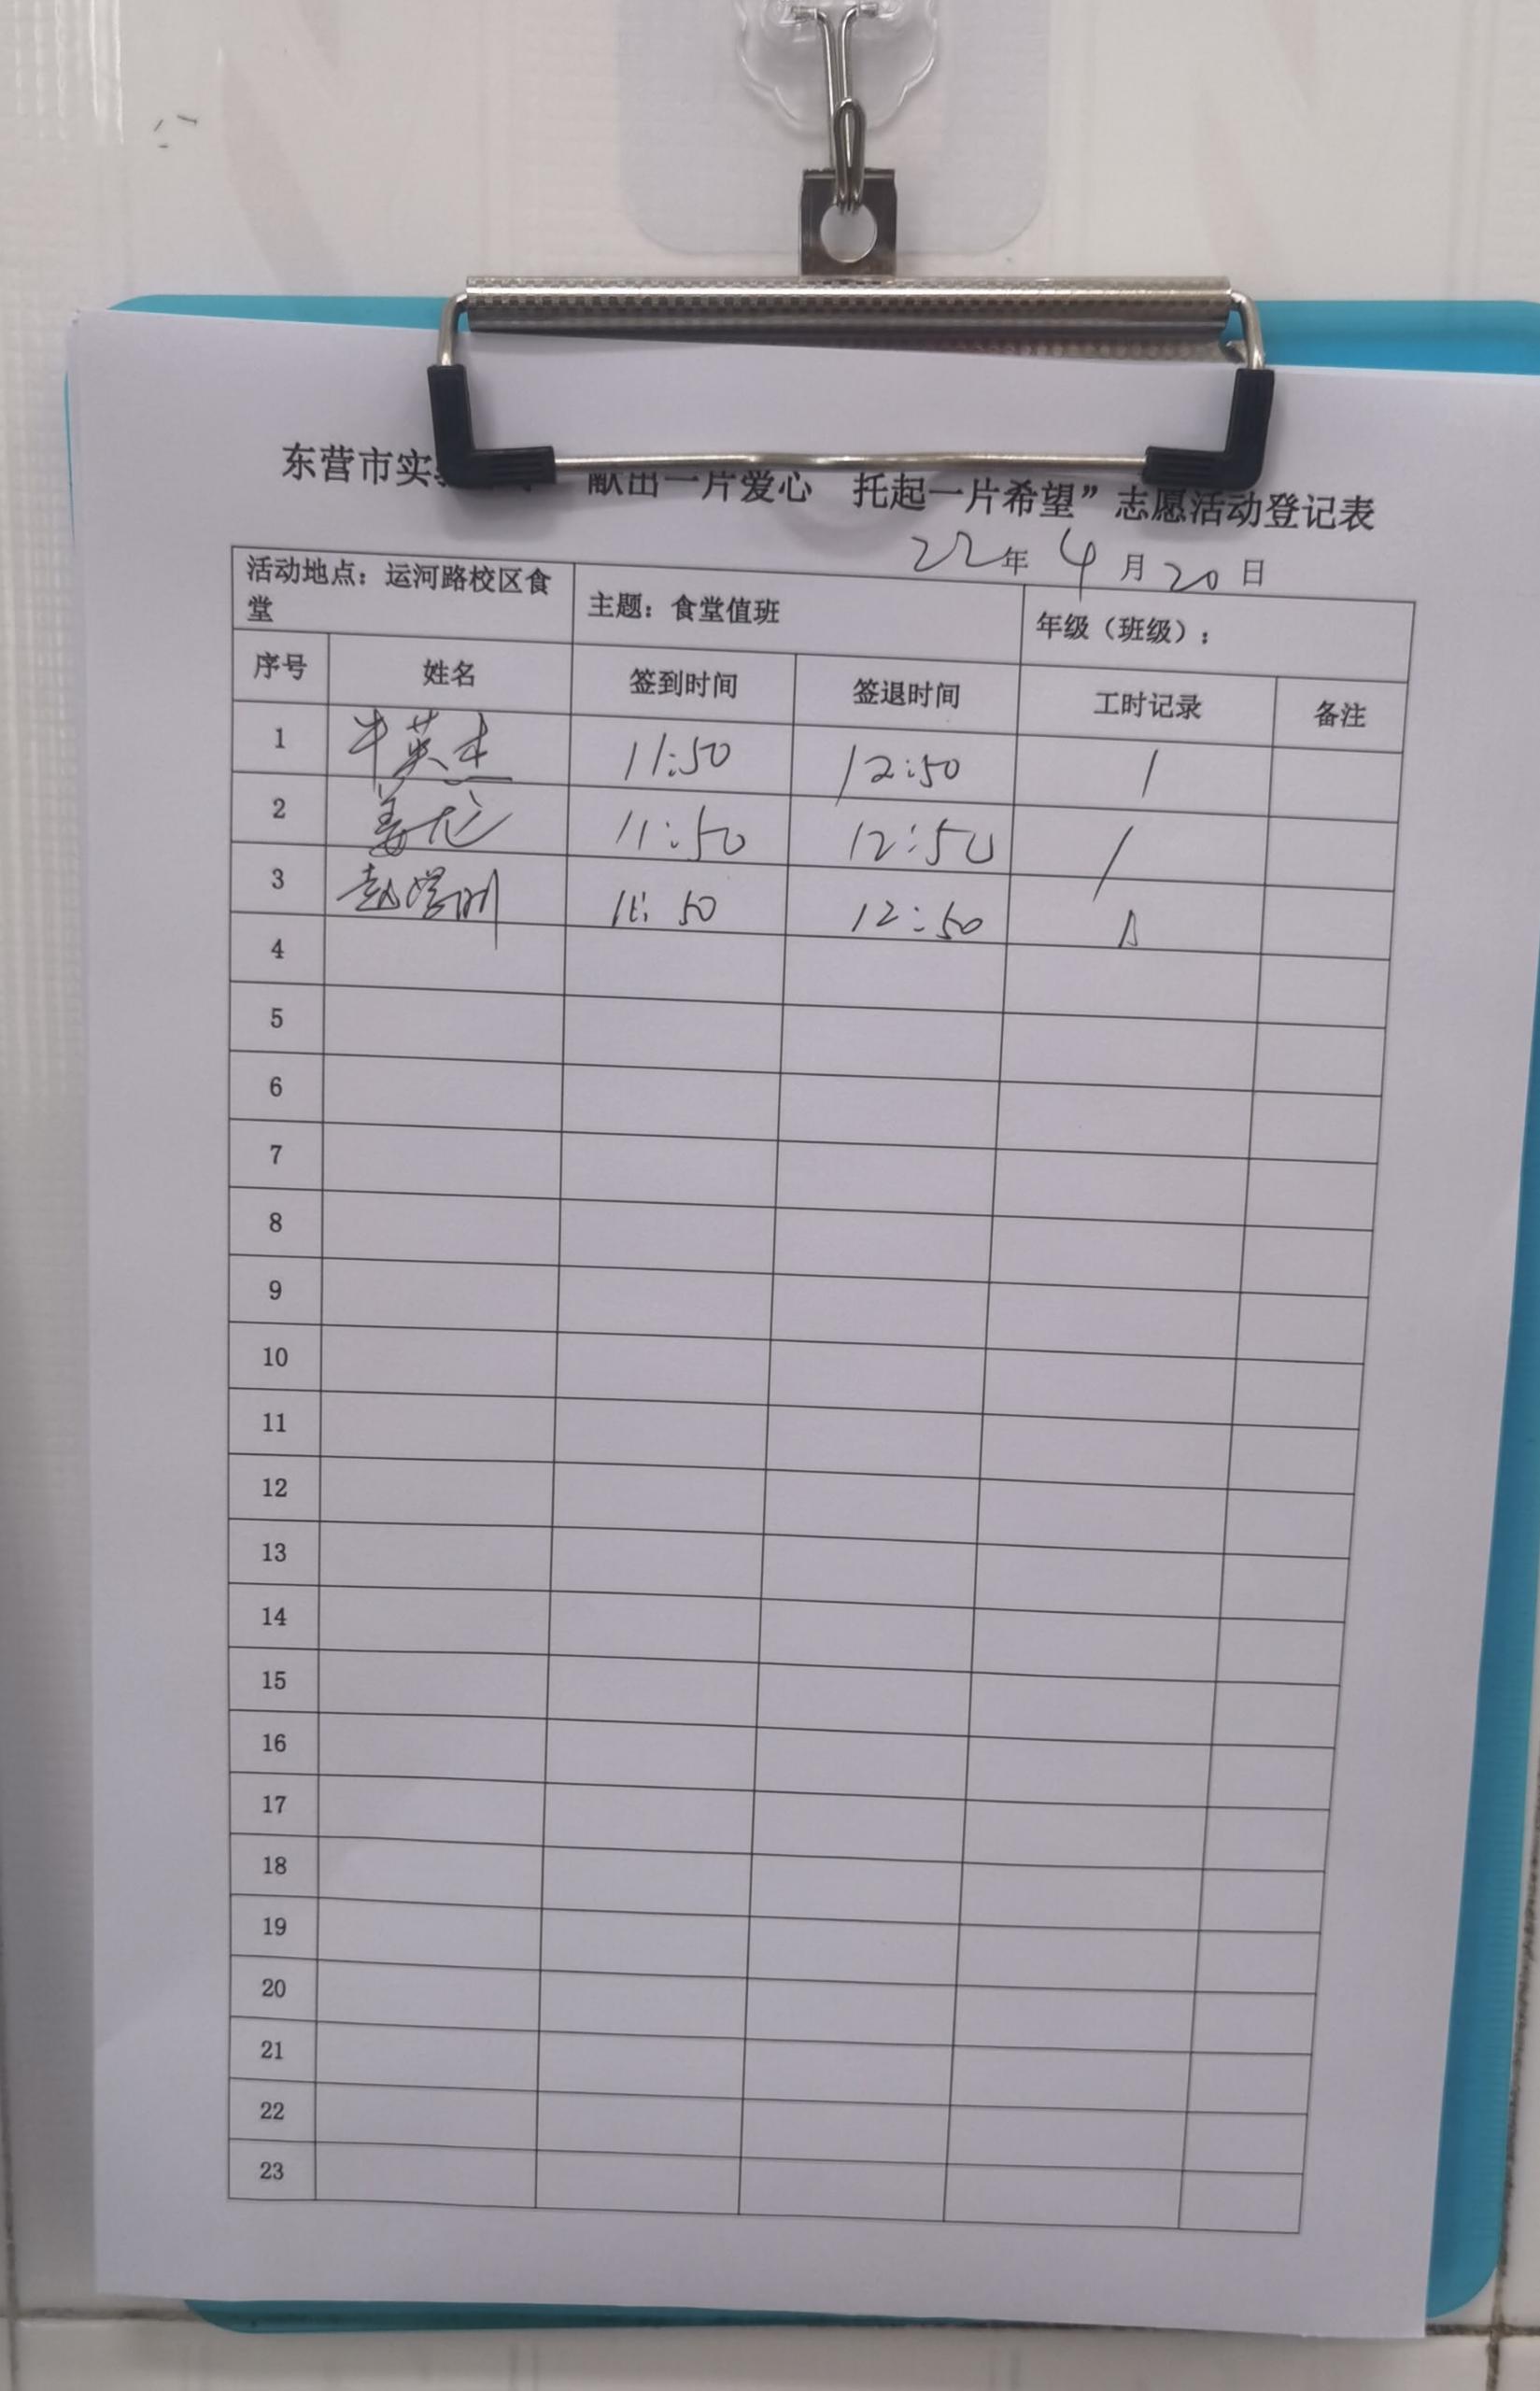 东营市实 献出一片爱心 托起一片希望”志愿活动登记表
22年 4月20日
活动地点：运河路校区食堂 主题：食堂值班 年级（班级）：
序号 姓名 签到时间 签退时间 工时记录 备注
1 牛英杰 11:50 12:50 1
2 姜龙 11:50 12:50 1
3 赵学刚 11:50 12:50 1
4
5
6
7
8
9
10
11
12
13
14
15
16
17
18
19
20
21
22
23